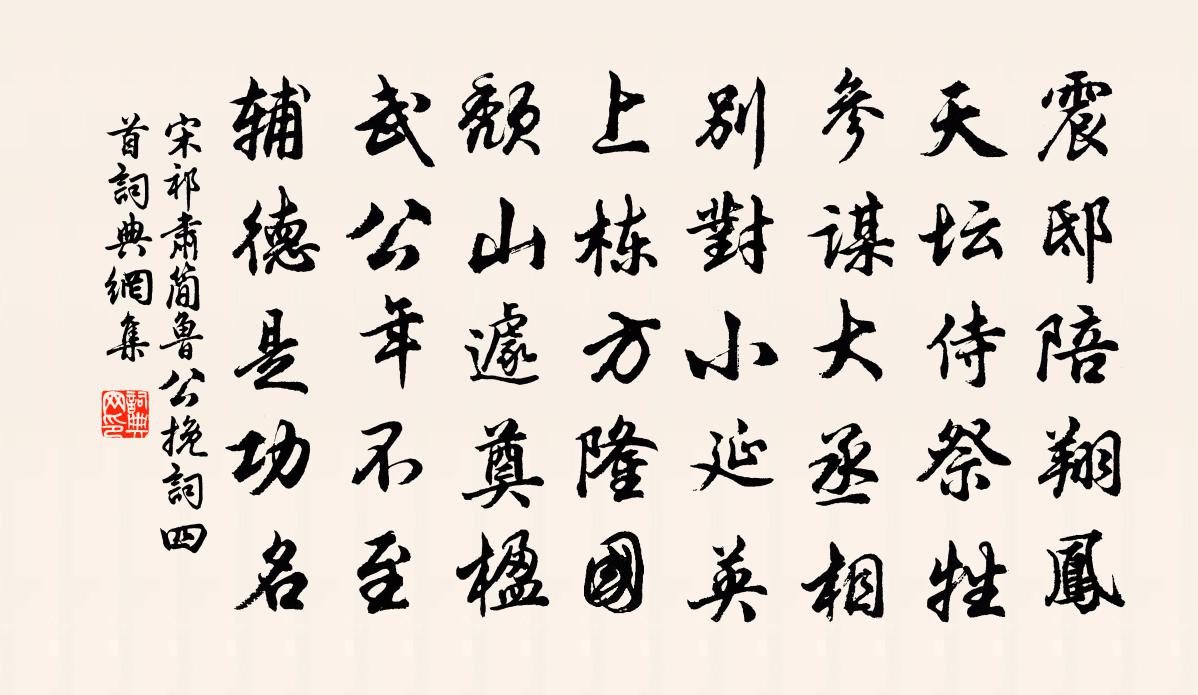 震邸陪翔鳳
天坛侍祭牲
參谋大丞相
別對小延英
上栋方隆國
颓山遽奠楹
武公年不至
辅德是功名
宋祁肃簡魯公挽詞四
首詞典網集
詞典
网印